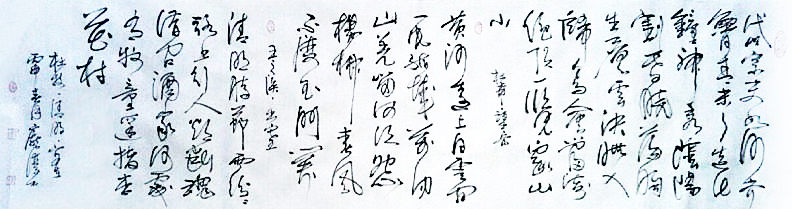 岱宗夫如何齐
鲁青未了造化
鐘神秀陰陽
割昏曉荡胸
生层雲决眦入
歸鳥會當凌
绝顶一览众山
小
杜甫望岳
黄河遠上白雲间
一片孤城萬仞
山羌笛何须怨
楊柳春風
不渡玉门關
王之涣出塞
清明時節雨纷纷
路上行人欲斷魂
借问酒家何處
有牧童遥指杏
花村
杜牧清明